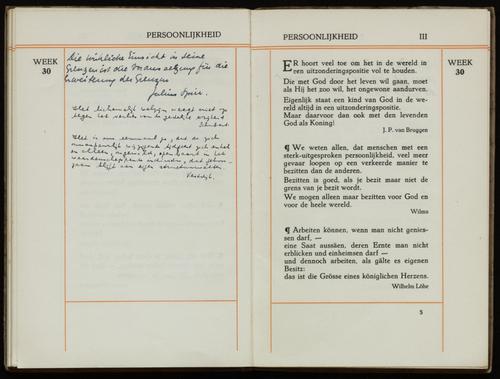 PERSOONLIJKHEID
WEEK
30
Die wirkliche Einsicht in seine
Grenzen ist die Voraussetzung für die
Erweiterung der Grenzen
Julius Spier.
Het lichamelijk welzijn weegt niet op
tegen het verlies van
Het is nu eenmaal zo, dat
PERSOONLIJKHEID
III
WEEK
30
ER hoort veel toe om het in de wereld in
een uitzonderingspositie vol te houden.
Die met God door het leven wil gaan, moet
als Hij het zoo wil, het ongewone aandurven.
Eigenlijk staat een kind van God in de we-
reld altijd in een uitzonderingspositie.
Maar daarvoor dan ook met den levenden
God als Koning!
J. P. van Bruggen
¶ We weten allen, dat menschen met een
sterk-uitgesproken persoonlijkheid, veel meer
gevaar loopen op een verkeerde manier te
bezitten dan de anderen.
Bezitten is goed, als je bezit maar niet de
grens van je bezit wordt.
We mogen alleen maar bezitten voor God en
voor de heele wereld.
Wilma
¶ Arbeiten können, wenn man nicht genies-
sen darf, —
eine Saat aussäen, deren Ernte man nicht
erblicken und einheimsen darf —
und dennoch arbeiten, als gälte es eigenen
Besitz:
das ist die Grösse eines königlichen Herzens.
Wilhelm Löhe
5